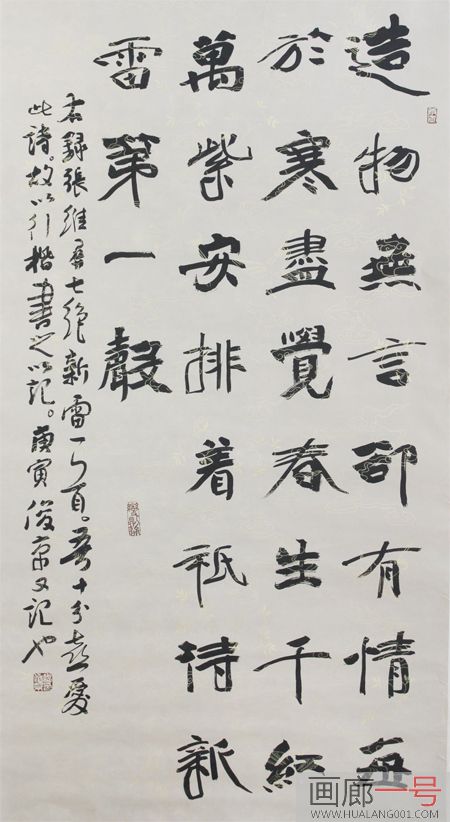 造物無言卻有情每
於寒盡覺春生千紅
萬紫安排着祇待新
雷第一聲
右錄張維屏七絕新雷一首。吾十分喜愛
此詩。故以行楷書之以記。庚寅俊京又記也
画廊一号
WWW.HUALANG001.COM